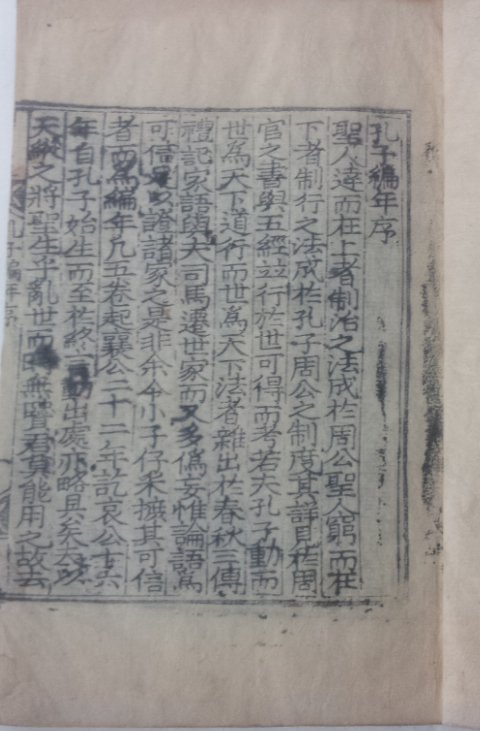 孔子編年序
聖人達而在上者制治之法成於周公聖人窮而在
下者制行之法成於孔子周公之制度其詳見於周
官之書與五經並行於世可得而考若夫孔子動而
世為天下道行而世為天下法者雜出於春秋三傳
禮記家語與夫司馬遷世家而又多偽妄惟論語為
可信足以證諸家之是非余令小子仔采摭其可信
者而為編年凡五卷起襄公二十二年訖哀公十六
年自孔子始生而至於終言動出處亦略具矣夫
天縱之將聖生乎亂世而時無賢君莫能用之故去
孔子編年序